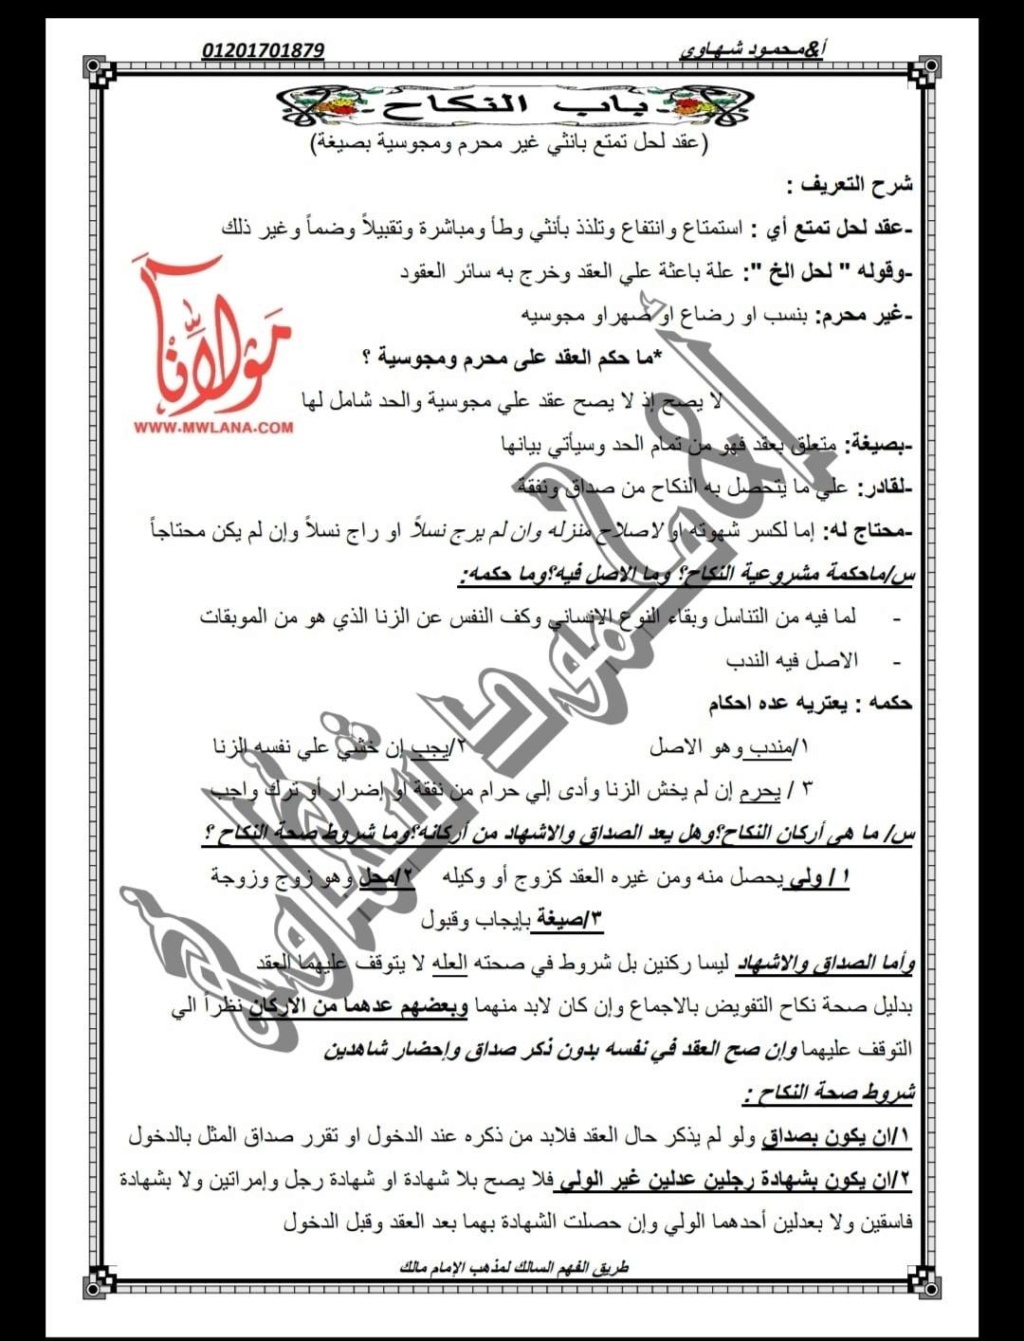 أ&محمود شهاوي 01201701879
باب النكاح
(عقد لحل تمتع بانثي غير محرم ومجوسية بصيغة)
شرح التعريف :
-عقد لحل تمتع أي : استمتاع وانتفاع وتلذذ بأنثي وطأ ومباشرة وتقبيلاً وضماً وغير ذلك
-وقوله " لحل الخ ": علة باعثة علي العقد وخرج به سائر العقود
-غير محرم: بنسب او رضاع او صهراو مجوسيه
*ما حكم العقد على محرم ومجوسية ؟
لا يصح إذ لا يصح عقد علي مجوسية والحد شامل لها
مولانا
WWW.MWLANA.COM
-بصيغة: متعلق بعقد فهو من تمام الحد وسيأتي بيانها
-لقادر: علي ما يتحصل به النكاح من صداق ونفقة
-محتاج له: إما لكسر شهوته او لاصلاح منزله وان لم يرج نسلاً او راج نسلاً وإن لم يكن محتاجاً
س/ماحكمة مشروعية النكاح؟ وما الاصل فيه؟وما حكمه:
- لما فيه من التناسل وبقاء النوع الإنساني وكف النفس عن الزنا الذي هو من الموبقات
- الاصل فيه الندب
حكمه : يعتريه عده احكام
١/مندب وهو الاصل ٢/يجب إن خشي علي نفسه الزنا
٣ / يحرم إن لم يخش الزنا وأدى إلي حرام من نفقة أو إضرار أو ترك واجب
س/ ما هى أركان النكاح؟وهل يعد الصداق والاشهاد من أركانه؟وما شروط صحة النكاح ؟
١/ ولي يحصل منه ومن غيره العقد كزوج أو وكيله ٢/محل وهو زوج وزوجة
٣/صيغة بإيجاب وقبول
وأما الصداق والاشهاد ليسا ركنين بل شروط في صحته العله لا يتوقف عليهما العقد
بدليل صحة نكاح التفويض بالاجماع وإن كان لابد منهما وبعضهم عدهما من الاركان نظراً الي
التوقف عليهما وإن صح العقد في نفسه بدون ذكر صداق وإحضار شاهدين
شروط صحة النكاح :
١/ان يكون بصداق ولو لم يذكر حال العقد فلابد من ذكره عند الدخول او تقرر صداق المثل بالدخول
٢/ان يكون بشهادة رجلين عدلين غير الولي فلا يصح بلا شهادة او شهادة رجل وإمراتين ولا بشهادة
فاسقين ولا بعدلين أحدهما الولي وإن حصلت الشهادة بهما بعد العقد وقبل الدخول
طريق الفهم السالك لمذهب الإمام مالك
أ/محمود شهاوي